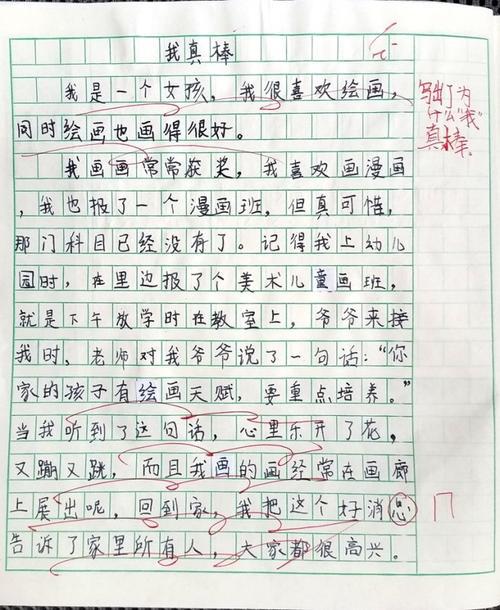 我真棒
我是一个女孩，我很喜欢绘画，
同时绘画也画得很好。
我画画常常获奖，我喜欢画漫画
，我也报了一个漫画班，但真可惜，
那门科目已经没有了。记得我上幼儿
园时，在里边报了个美术儿童画班，
就是下午放学时在教室上，爷爷来接
我时，老师对我爷爷说了一句话：“你
家的孩子有绘画天赋，要重点培养。”
当我听到了这句话，心里乐开了花，
又蹦又跳，而且我画的画经常在画廊
上展出呢，回到家，我把这个好消息
告诉了家里所有人，大家都很高兴。
写出了为
什么“我”
真棒